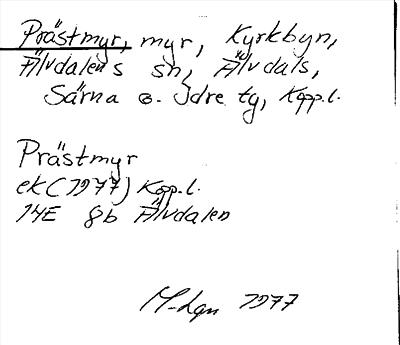 Prästmyr, myr, Kyrkbyn,
Älvdalens sn, Älvdals,
Särna o. Idre tg, Kopp.l.
Prästmyr
ek (1977) Kopp.l.
14E 8b Älvdalen
M-Lgn 1977